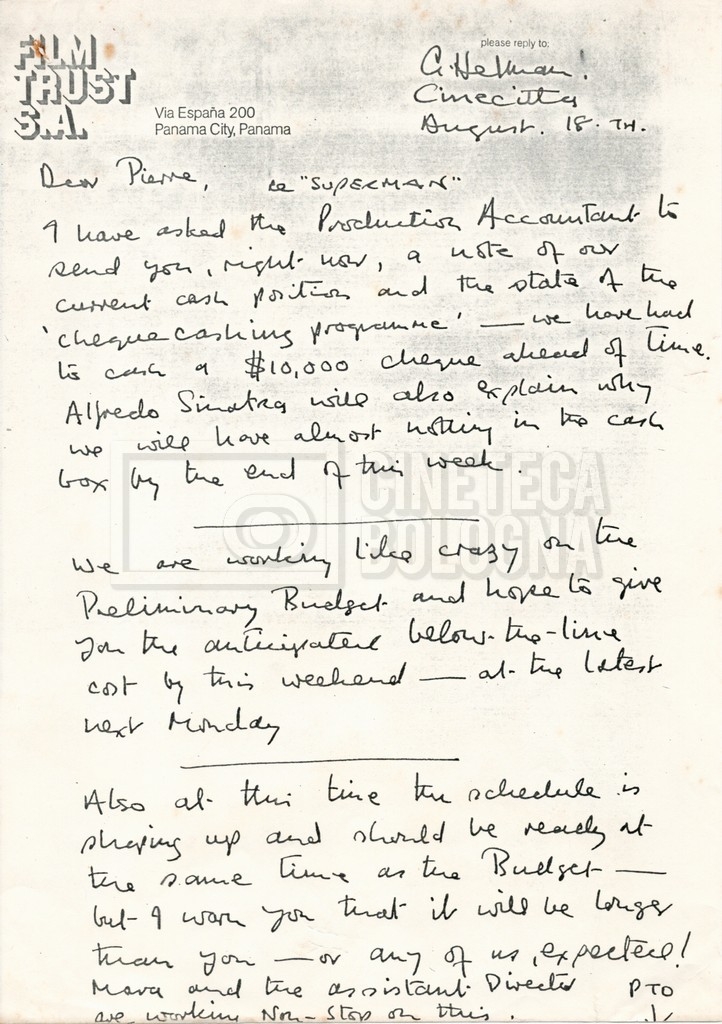 FILM
TRUST
S.A.
Via España 200
Panama City, Panama
please reply to:
G. Helman!
Cinecitta
August. 18. TH.
Dear Pierre, re "SUPERMAN"
I have asked the Production Accountant to
send you, right now, a note of our
current cash position and the state of the
'cheque cashing programme' — we have had
to cash a $10,000 cheque ahead of time.
Alfredo Sinatra will also explain why
we will have almost nothing in the cash
box by the end of this week.
CINETECA
BOLOGNA
We are working like crazy on the
Preliminary Budget and hope to give
you the anticipated below-the-line
cost by this weekend — at the latest
next Monday
Also at this time the schedule is
shaping up and should be ready at
the same time as the Budget —
but I warn you that it will be longer
than you — or any of us, expected!
Mara and the assistant Director PTO
are working Non-Stop on this.